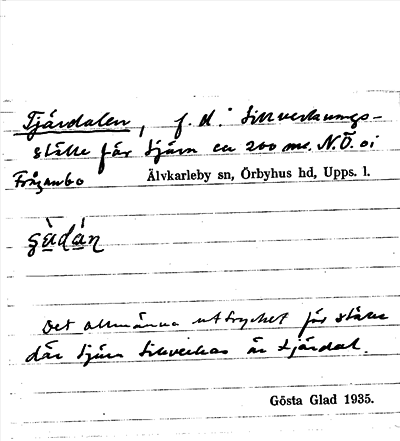 Tjärdalen, f. d. tillverknings-
ställe för tjära ca 200 m. N.Ö. oi
Frågambo Älvkarleby sn, Örbyhus hd, Upps. l.
Det allmänna uttrycket för ställe
där tjära tillverkas är tjärdal.
Gösta Glad 1935.